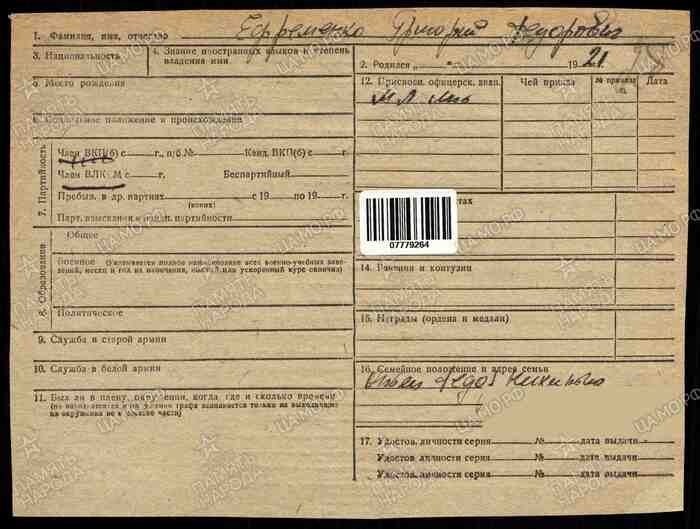 1. Фамилия, имя, отчество Ефременко Григорий Федорович
2. Родился „ “ 1921.
3. Национальность
4. Знание иностранных языков и степень владения ими
5. Место рождения
6. Социальное положение и происхождение
7. Партийность
Член ВКП(б) с г., п/б № Канд. ВКП(б) с г.
Член ВЛКСМ с г. Беспартийный
Пребыв. в др. партиях с 19 по 19 г.
(каких)
Парт. взыскания и партийности
8. Образование
Общее
Военное (Указывается полное наименование всех военно-учебных заве-
дений, месяц и год их окончания, полный или ускоренный курс окончил)
Политическое
9. Служба в старой армии
10. Служба в белой армии
11. Был ли в плену, окружении, когда, где и сколько времени
на выходящих
из окружения не в составе части)
12. Присвоен. офицерск. зван. Чей приказ № приказа Дата
мл л-т
07779264
14. Ранения и контузии
15. Награды (ордена и медали)
16. Семейное положение и адрес семьи
Отец Федор
17. Удостов. личности серия № дата выдачи
Удостов. личности серия № дата выдачи
Удостов. личности серия № дата выдачи
ПАМЯТЬ НАРОДА
ЦАМО.РФ